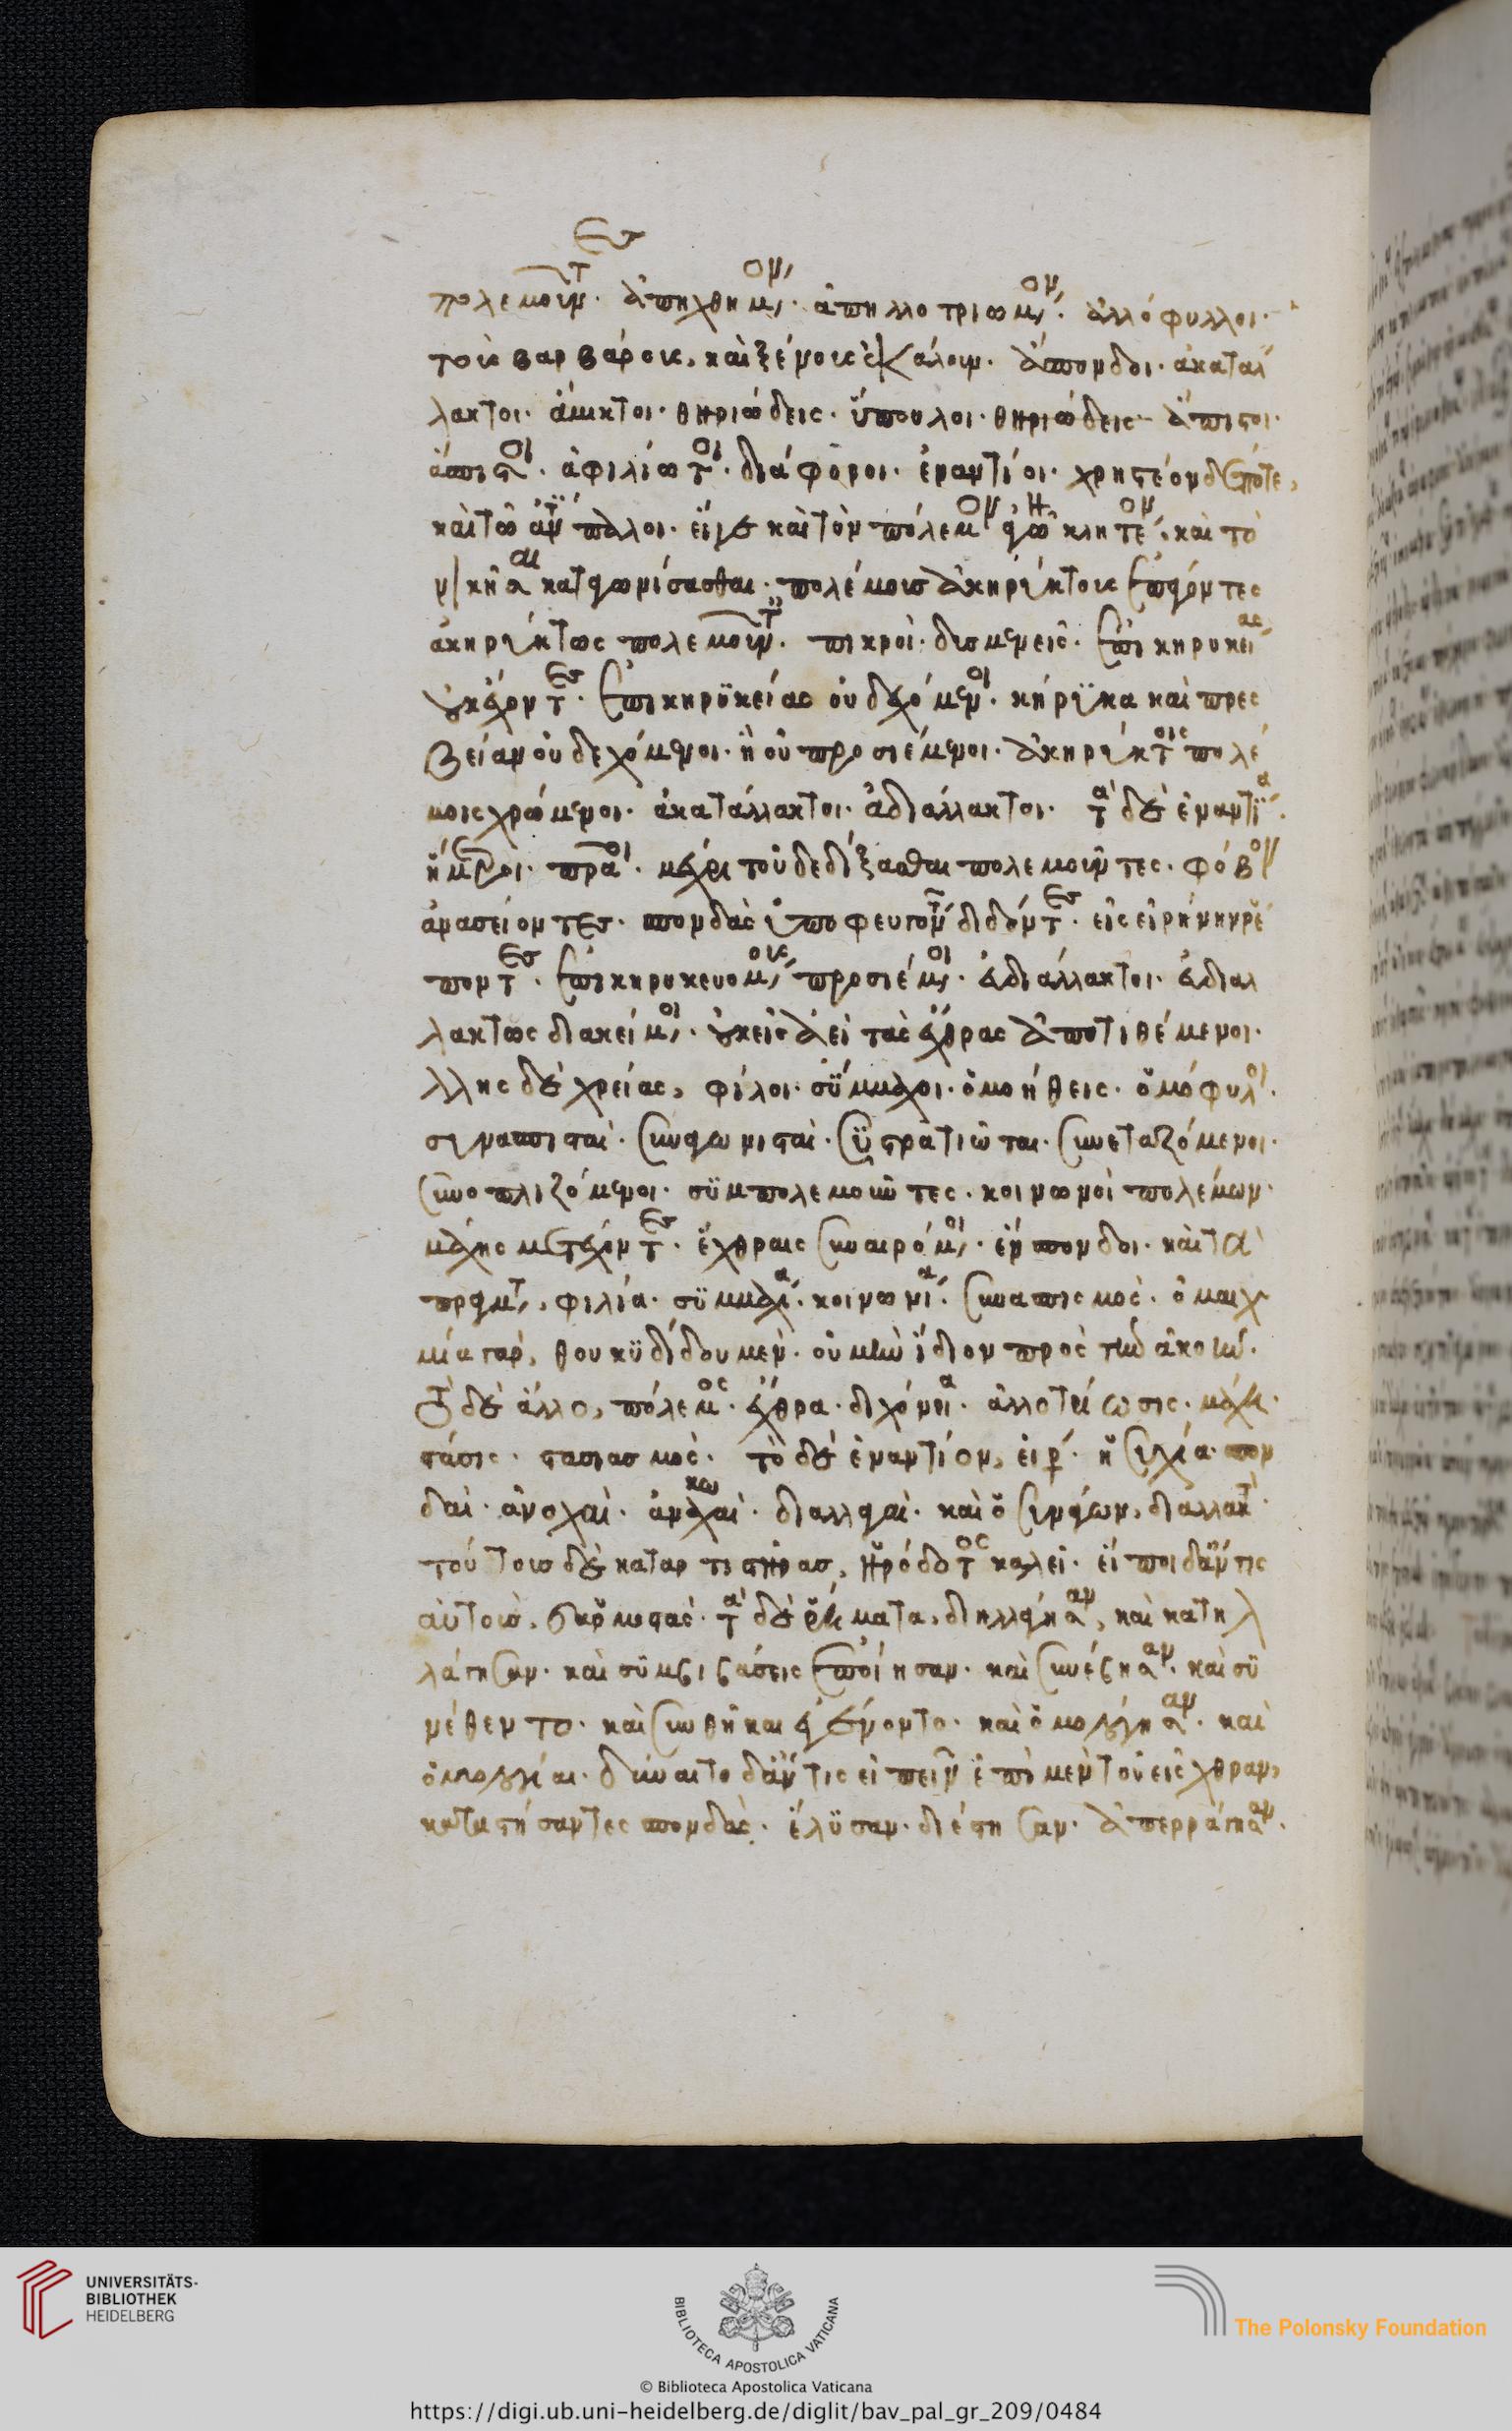 πολεμοῦντες. ἀπηχθημένον. ἀπηλλοτριωμένον. ἀλλόφυλλοι.
τοὺς βαρβάρους, καὶ ξένους ἐκάλουν. ἄσπονδοι. ἀκαταλ
λακτοι. ἄμικτοι. θηριώδεις. ὕπουλοι. θηριώδεις ἄπιστοι.
ἄσπιστοι. ἀφιλίωτοι. διάφοροι. ἐναντίοι. χρηστέον δέ ποτε,
καὶ τῶ ἀντίπαλοι. καὶ τὸν πόλεμον κλητέον. καὶ τὸ
νικῆσαι καταγωνίσασθαι. πολέμοις ἀκηρύκτοις
ἀκηρύκτως πολεμοῦντες. πικροὶ. δυσμενεῖς. ἐπικηρυκείας
οὐκ ἔχοντες. ἐπικηρυκείας οὐ δεχόμενοι. κήρυκα καὶ πρεσ
βείαν οὐ δεχόμενοι. ἢ οὐ προσιέμενοι. ἀκηρύκτοις πολέ
μοις χρώμενοι. ἀκατάλλακτοι. ἀδιάλλακτοι. τὰ δὲ ἐναντία.
ἥμεροι. πρᾶοι. μέχρι τοῦ δεδίξασθαι πολεμοῦντες. φόβον
ἀνασείοντες. σπονδὰς ὑποφεύγουσι διδόντες. εἰς εἰρήνην ῥέ
ποντες. ἐπικηρυκευομένους προσιέμενοι. εὐδιάλλακτοι. εὐδιαλ
λάκτως διακείμενοι. οὐκ εἰς ἀεὶ τὰς ἔχθρας ἀποτιθέμενοι.
λλης δὲ χρείας, φίλοι. σύμμαχοι. ὁμοήθεις. ὁμόφυλοι.
συνασπισταὶ. συναγωνισταὶ. συστρατιῶται. συνεταζόμενοι.
συνοπλιζόμενοι. συμπολεμοῦντες. κοινωνοὶ πολέμων.
μάχης μετέχοντες. ἔχθραις συναιρόμενοι. ἔνσπονδοι. καὶ τὰ
πράγματα, φιλία. συμμαχία. κοινωνία. συνασπισμὸς. ὁμαιχ
μία γαρ, θουκυδίδου μὲν. οὐ μὴν ἴδιον πρὸς τὴν ἀκοὴν.
Τὸ δὲ ἄλλο, πόλεμος. ἔχθρα. διχόνοια. ἀλλοτρίωσις. μάχη.
στάσις. στασιασμὸς. τὸ δὲ ἐναντίον, εἰρήνη. ἡσυχία. σπον
δαὶ. ἀνοχαὶ. ἀνακωχαὶ. διαλλαγαὶ. καὶ ὁ συνάγων, διαλλακτὴς.
τούτους δὲ καταρτιστῆρας, ἡρόδοτος καλεῖ. εἴποι δ' ἄν τις
αὐτοὺς, εἰρηνοποιοὺς. τὰ δὲ ῥήματα, διηλλάγησαν, καὶ κατηλ
λάγησαν. καὶ συμβιβάσεις ἐποίησαν. καὶ συνέβησαν. καὶ συ
νέθεντο. καὶ συνθῆκαι ἐγένοντο. καὶ ὡμολόγησαν. καὶ
ὁμολογίαι. δύναιτο δ' ἄν τις εἰπεῖν ἐπὶ μὲν τοῦ εἰς ἔχθραν,
καταστήσαντες σπονδὰς. ἔλυσαν. διέστησαν. ἀπερράγησαν.
UNIVERSITÄTS-
BIBLIOTHEK
HEIDELBERG
BIBLIOTECA APOSTOLICA VATICANA
The Polonsky Foundation
© Biblioteca Apostolica Vaticana
https://digi.ub.uni-heidelberg.de/diglit/bav_pal_gr_209/0484